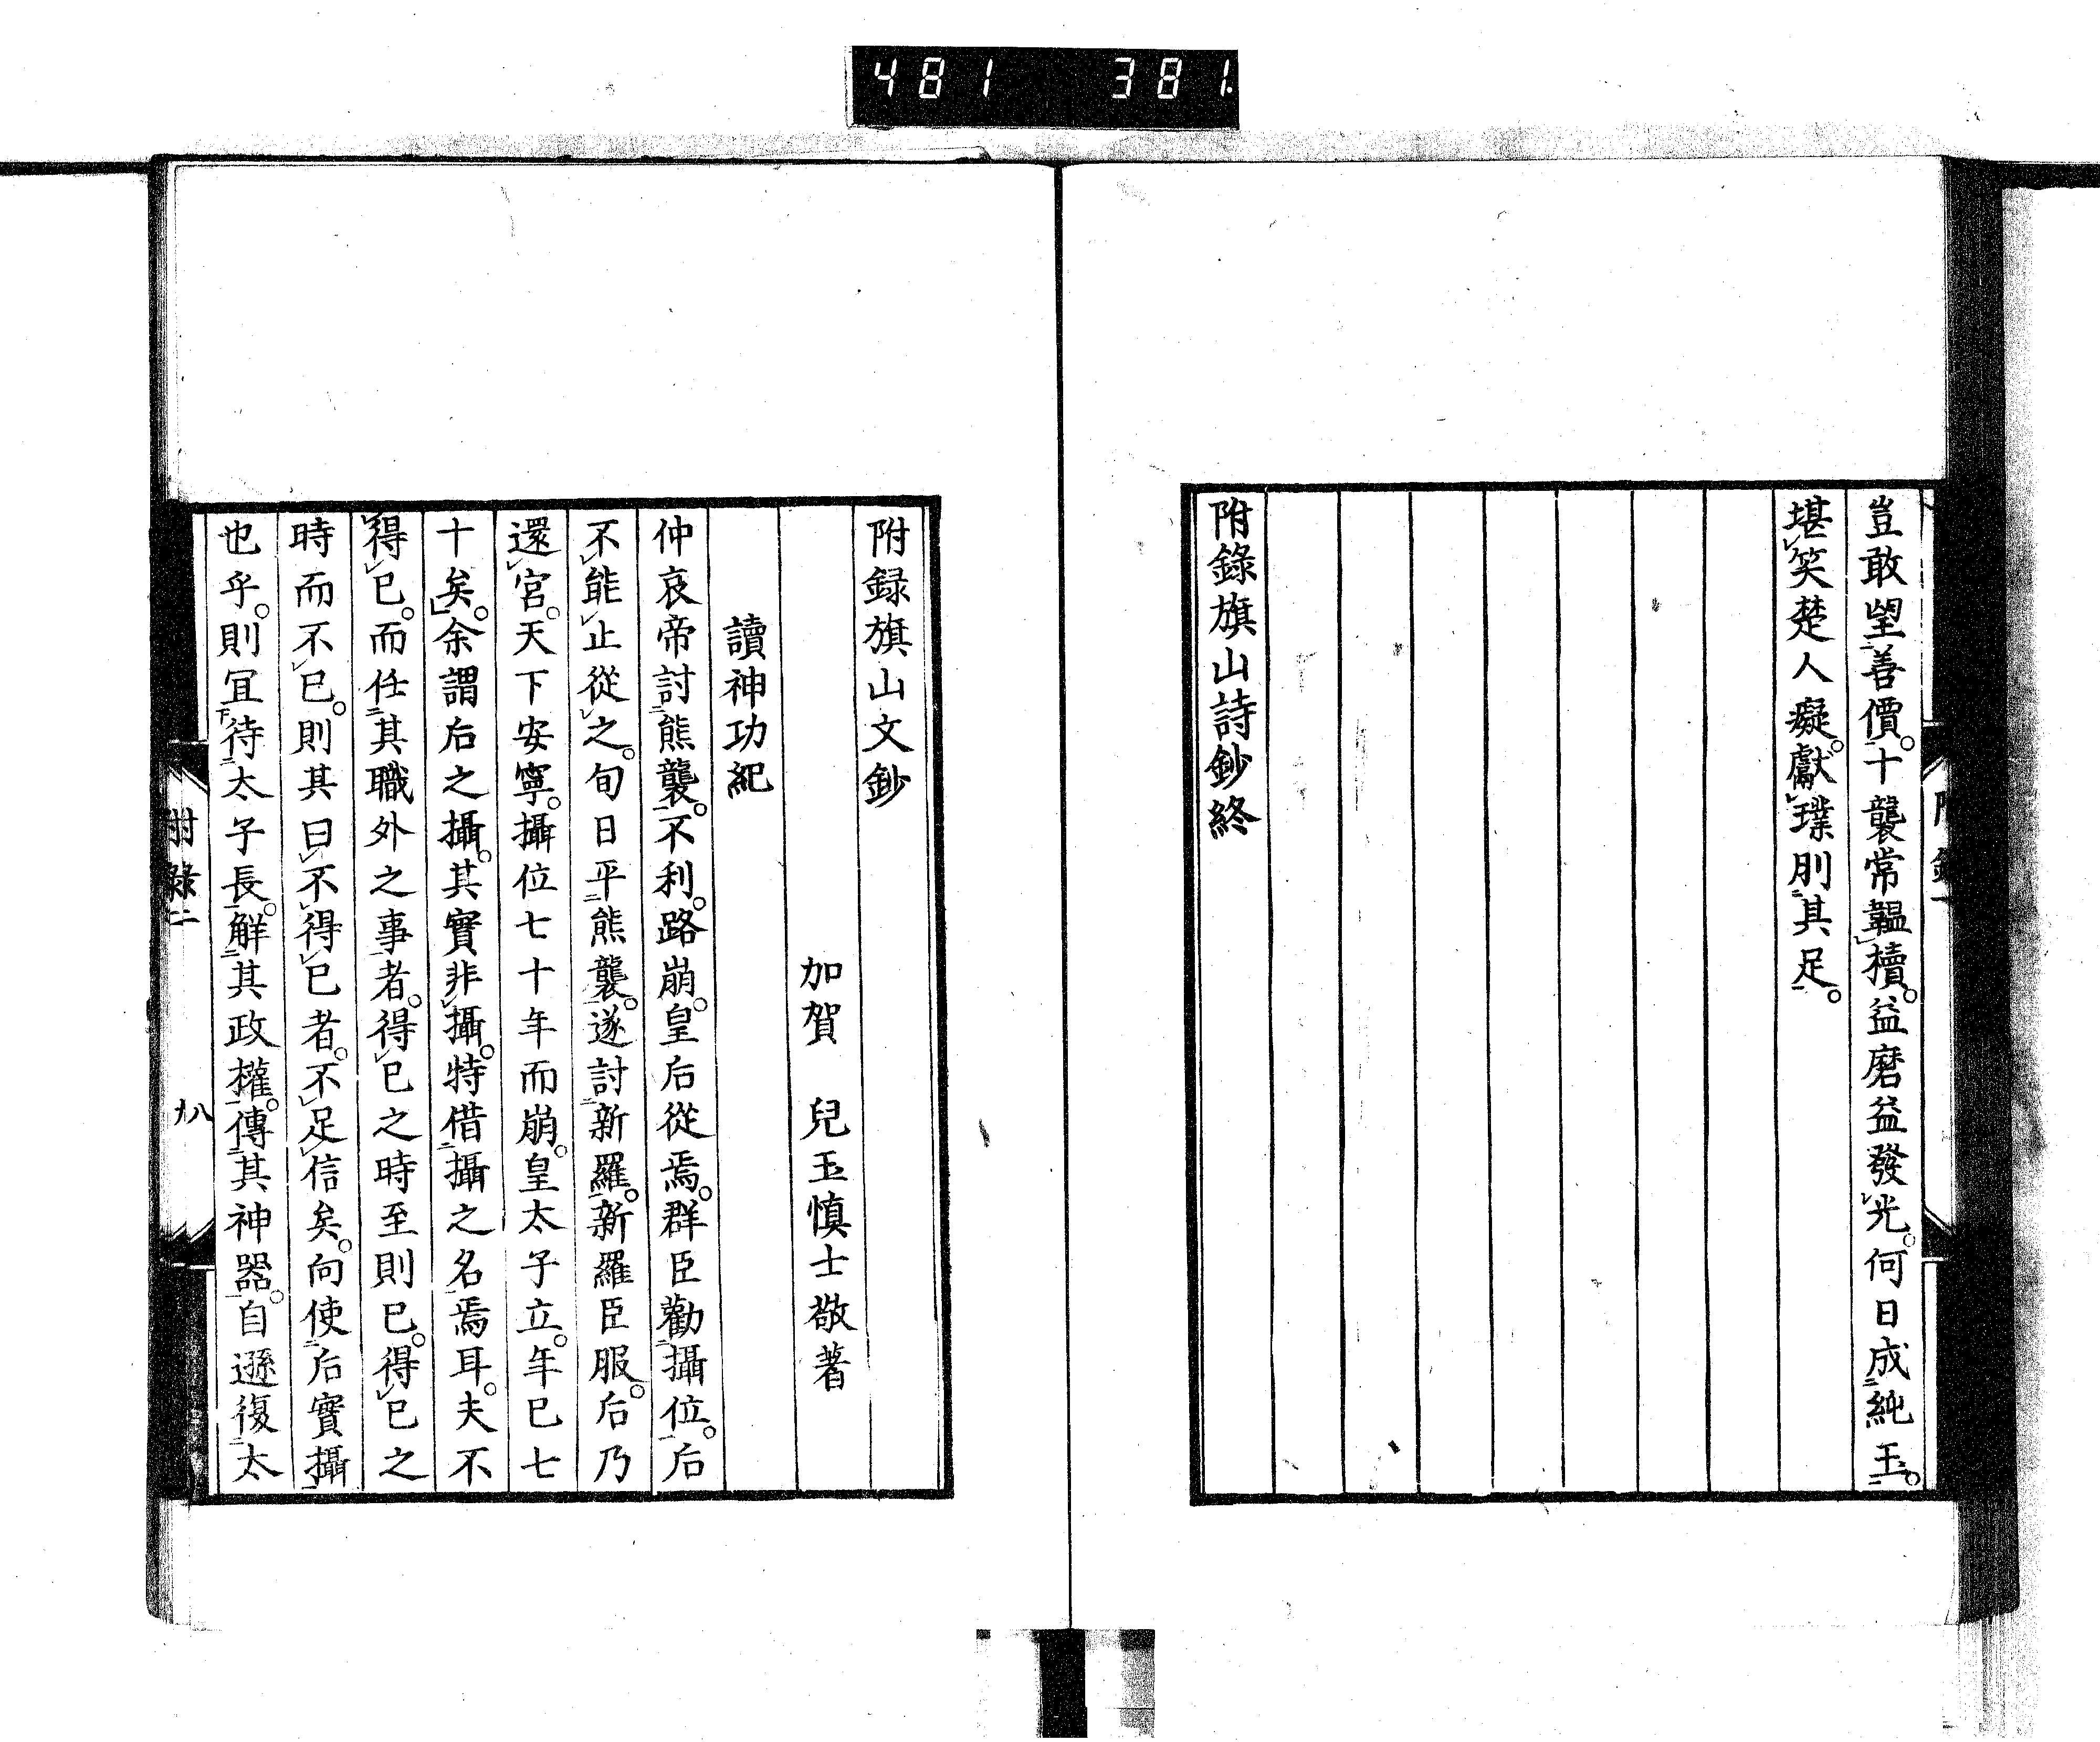 481 381.
豈敢望善價。十襲常韞櫝。益磨益發光。何日成純玉。
堪笑楚人癡。獻璞刖其足。
附錄旗山詩鈔終
附録旗山文鈔
加賀 兒玉慎士敬著
讀神功紀
仲哀帝討熊襲。不利。路崩。皇后從焉。群臣勸攝位。后
不能止從之。旬日平熊襲。遂討新羅。新羅臣服。后乃
還宮。天下安寧。攝位七十年而崩。皇太子立。年已七
十矣。余謂后之攝。其實非攝。特借攝之名焉耳。夫不
得已。而任其職外之事者。得已之時至則已。得已之
時而不已。則其曰不得已者。不足信矣。向使后實攝
也乎。則宜待太子長。解其政權。傳其神器。自遜復太
附錄二
十八